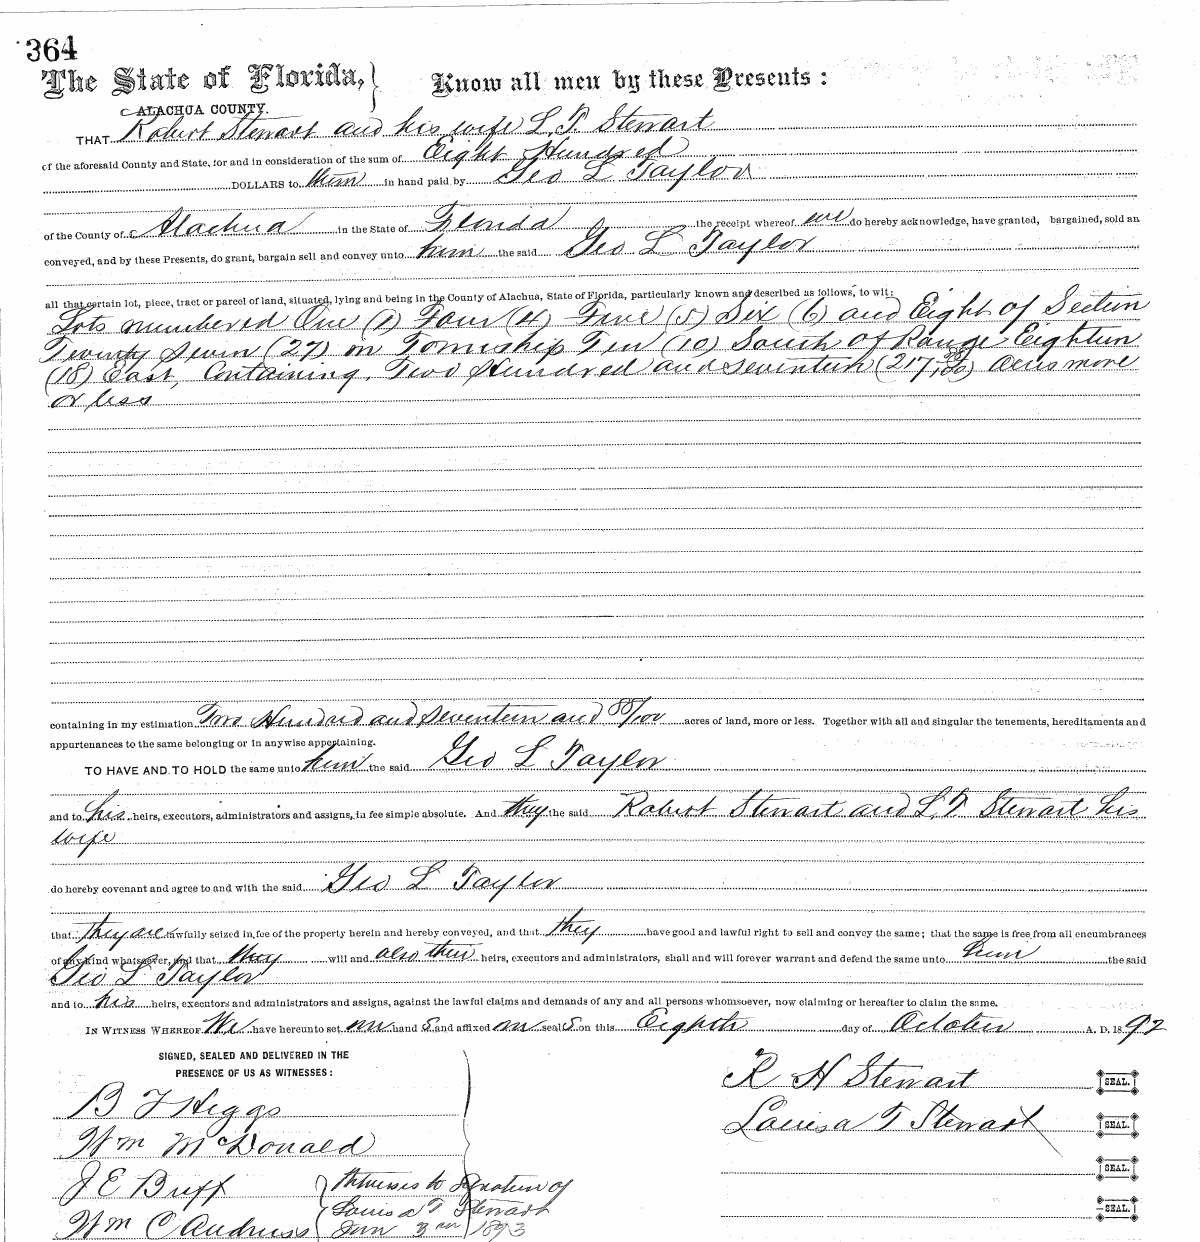 364
The State of Florida, } Know all men by these Presents :
ALACHUA COUNTY.
THAT Robert Stewart and his wife L. T. Stewart
of the aforesaid County and State, for and in consideration of the sum of Eight Hundred
DOLLARS to them in hand paid by Geo L Taylor
of the County of Alachua in the State of Florida the receipt whereof we do hereby acknowledge, have granted, bargained, sold an
conveyed, and by these Presents, do grant, bargain sell and convey unto him the said Geo L Taylor
all that certain lot, piece, tract or parcel of land, situated, lying and being in the County of Alachua, State of Florida, particularly known and described as follows, to wit:
Lots numbered One (1) Four (4) Five (5) Six (6) and Eight of Section
Twenty Seven (27) in Township Ten (10) South of Range Eighteen
(18) East, Containing, Two Hundred and Seventeen (217, 88/100) Acres more
or less
containing in my estimation Two Hundred and Seventeen and 88/100 acres of land, more or less. Together with all and singular the tenements, hereditaments and
appurtenances to the same belonging or in anywise appertaining.
TO HAVE AND TO HOLD the same unto him the said Geo L Taylor
and to his heirs, executors, administrators and assigns, in fee simple absolute. And they the said Robert Stewart and L. T. Stewart his
wife
do hereby covenant and agree to and with the said Geo L Taylor
that they are lawfully seized in fee of the property herein and hereby conveyed, and that they have good and lawful right to sell and convey the same; that the same is free from all encumbrances
of any kind whatsoever, and that they will and also their heirs, executors and administrators, shall and will forever warrant and defend the same unto him the said
Geo L Taylor
and to his heirs, executors and administrators and assigns, against the lawful claims and demands of any and all persons whomsoever, now claiming or hereafter to claim the same.
IN WITNESS WHEREOF We have hereunto set our hand S and affixed our seal S on this Eighth day of October A. D. 1892
SIGNED, SEALED AND DELIVERED IN THE
PRESENCE OF US AS WITNESSES :
R H Stewart SEAL.
B F Higgs
Louisa T Stewart SEAL.
Wm McDonald
SEAL.
J E Buff Witnesses to Signature of
Louisa T Stewart SEAL.
Wm C Andruss Jan 3rd 1893